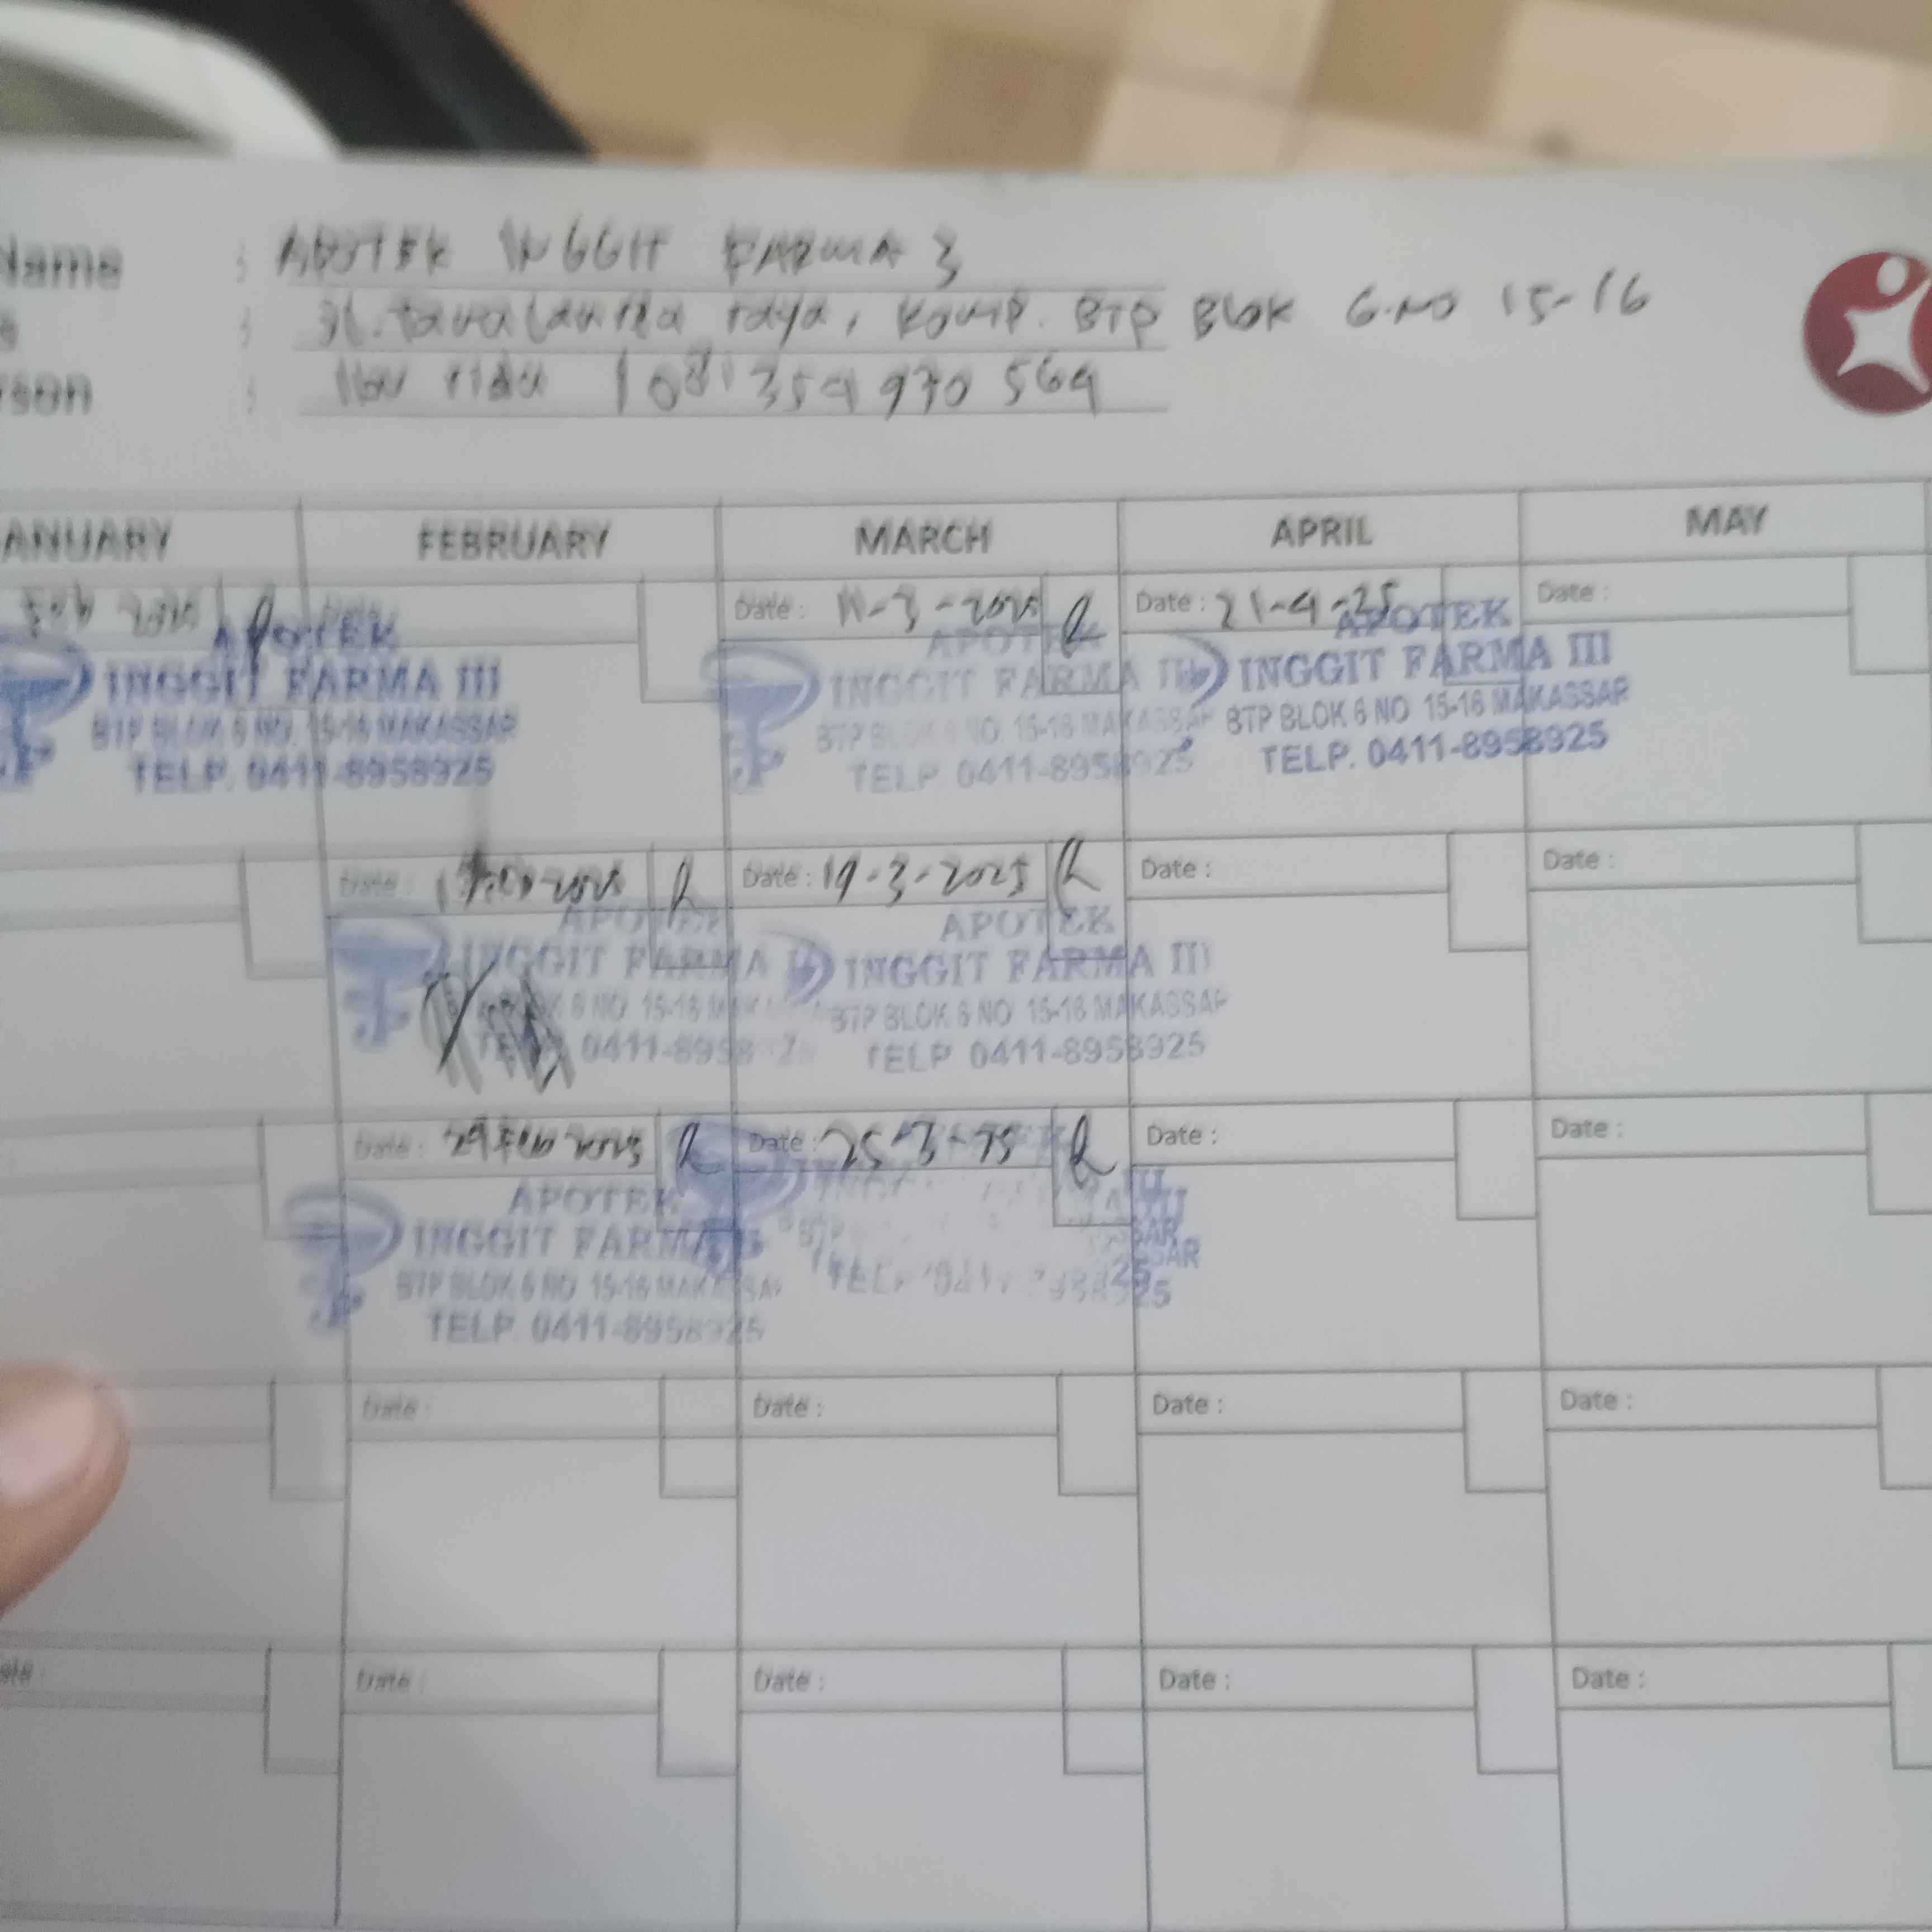 Name : APOTEK INGGIT FARMA 3
: Jl. tamalanrea raya, komp. BTP Blok 6.NO 15-16
: Ibu 081354970564
ANUARY FEBRUARY MARCH APRIL MAY
2025
APOTEK
INGGIT FARMA III
BTP BLOK 6 NO. 15-16 MAKASSAR
TELP. 0411-8958925
Date : 11-3-2025
APOTEK
INGGIT FARMA III
BTP BLOK 6 NO. 15-16 MAKASSAR
TELP. 0411-8958925
Date : 21-4-25
APOTEK
INGGIT FARMA III
BTP BLOK 6 NO 15-16 MAKASSAR
TELP. 0411-8958925
Date :
Date : 2025
APOTEK
INGGIT FARMA
6 NO 15-16
0411-8958
Date : 19-3-2025
APOTEK
INGGIT FARMA III
BTP BLOK 6 NO 15-16 MAKASSAR
TELP 0411-8958925
Date :
Date :
Date : Feb 2025
APOTEK
INGGIT FARMA
BTP BLOK 6 NO 15-16 MAKASSAR
TELP. 0411-8958925
Date : 25-3-25
BTP
TELP 0411
Date :
Date :
Date :
Date :
Date :
Date :
Date :
Date :
Date :
Date :